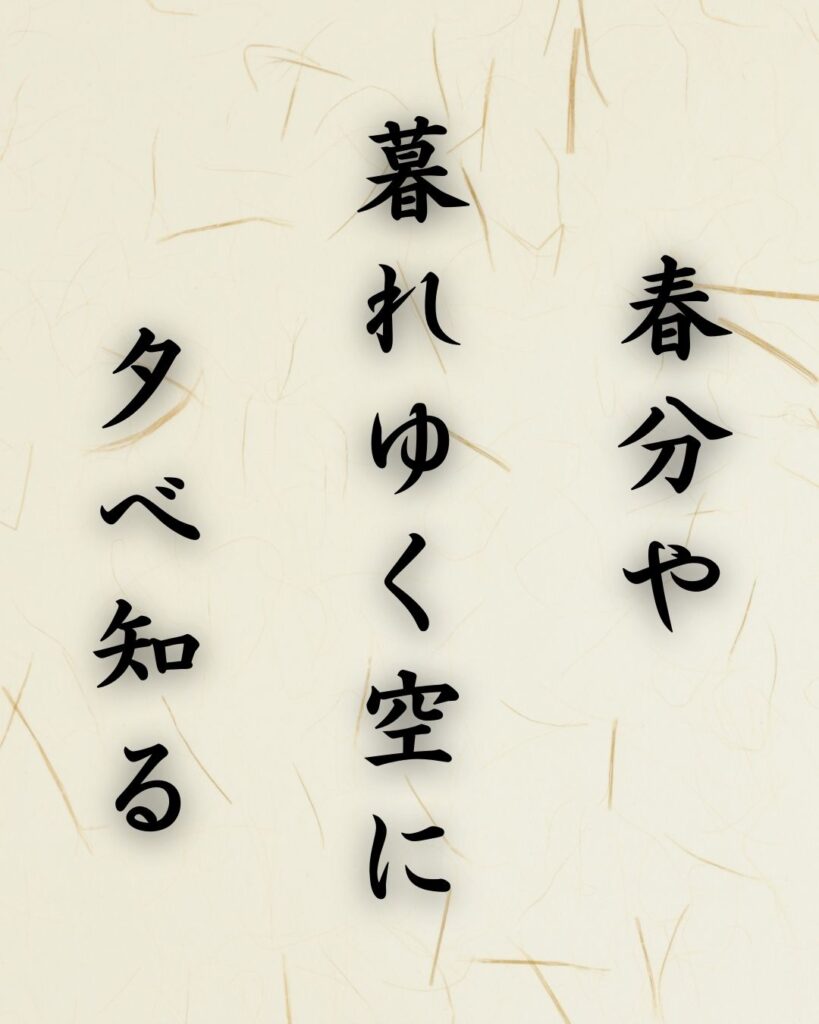 春分や
暮れゆく空に
夕べ知る